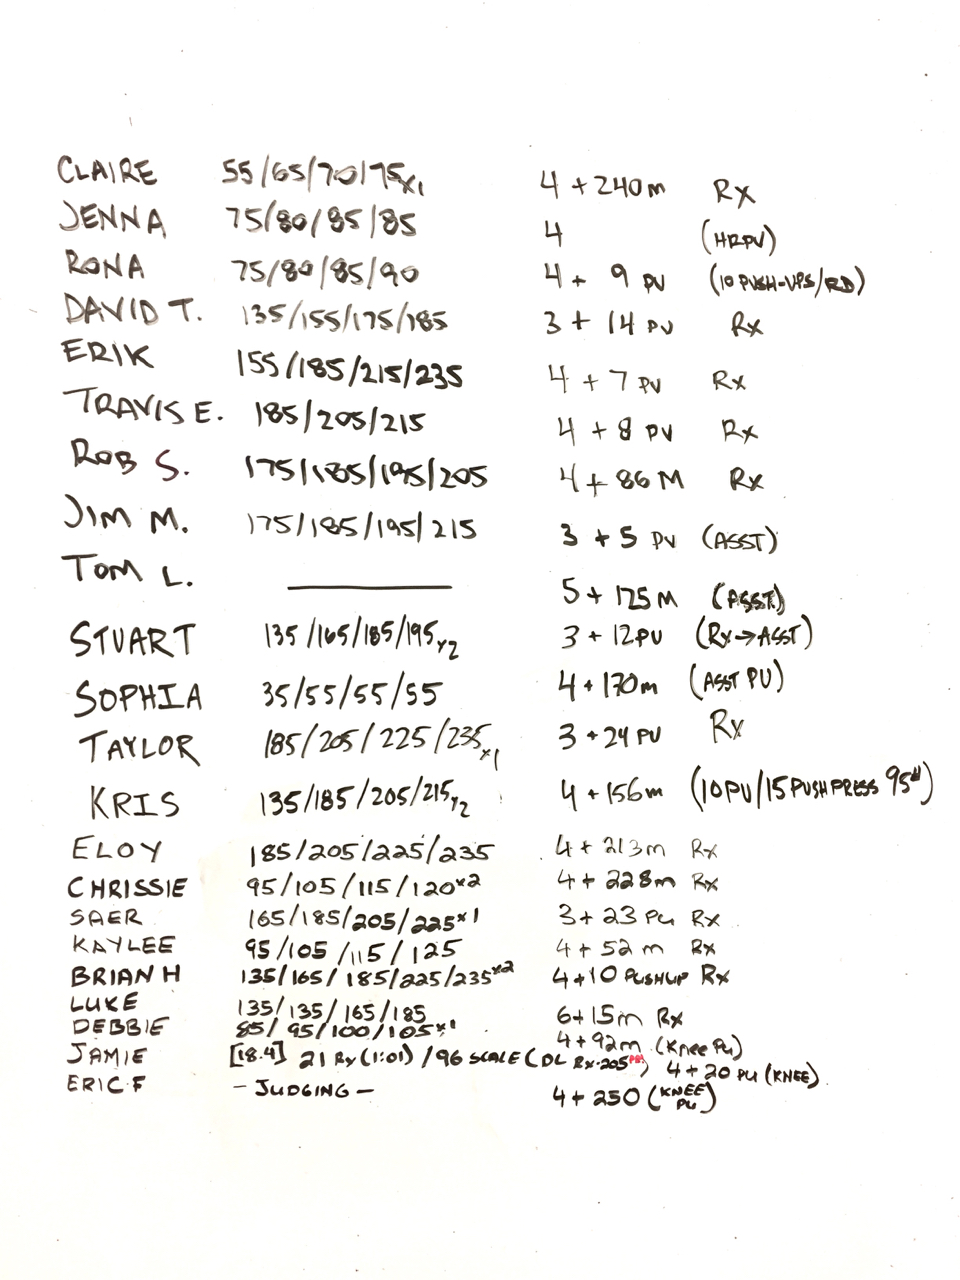 CLAIRE 55/65/70/75x1 4 + 240m Rx
JENNA 75/80/85/85 4 (HRPU)
RONA 75/80/85/90 4 + 9 PU (10 PUSH-UPS/RD)
DAVID T. 135/155/175/185 3 + 14 PU Rx
ERIK 155/185/215/235 4 + 7 PU Rx
TRAVIS E. 185/205/215 4 + 8 PU Rx
ROB S. 175/185/195/205 4 + 86 M Rx
JIM M. 175/185/195/215 3 + 5 PU (ASST)
TOM L. ———— 5 + 125 M (ASST)
STUART 135/165/185/195x2 3 + 12PU (Rx→ASST)
SOPHIA 35/55/55/55 4 + 170m (ASST PU)
TAYLOR 185/205/225/235x1 3 + 24 PU Rx
KRIS 135/185/205/215x2 4 + 156m (10PU/15 PUSH PRESS 95#)
ELOY 185/205/225/235 4 + 213m Rx
CHRISSIE 95/105/115/120x2 4 + 228m Rx
SAER 165/185/205/225x1 3 + 23 PU Rx
KAYLEE 95/105/115/125 4 + 52 m Rx
BRIAN H 135/165/185/225/235x2 4+10 PUSHUP Rx
LUKE 135/135/165/185 6+15m Rx
DEBBIE 85/95/100/105x1 4 + 92m (Knee PU)
JAMIE [18.4] 21 Rx (1:01) / 96 SCALE (DL Rx-205 PR!) 4 + 20 PU (KNEE)
ERIC F - JUDGING - 4 + 250 (KNEE PU)